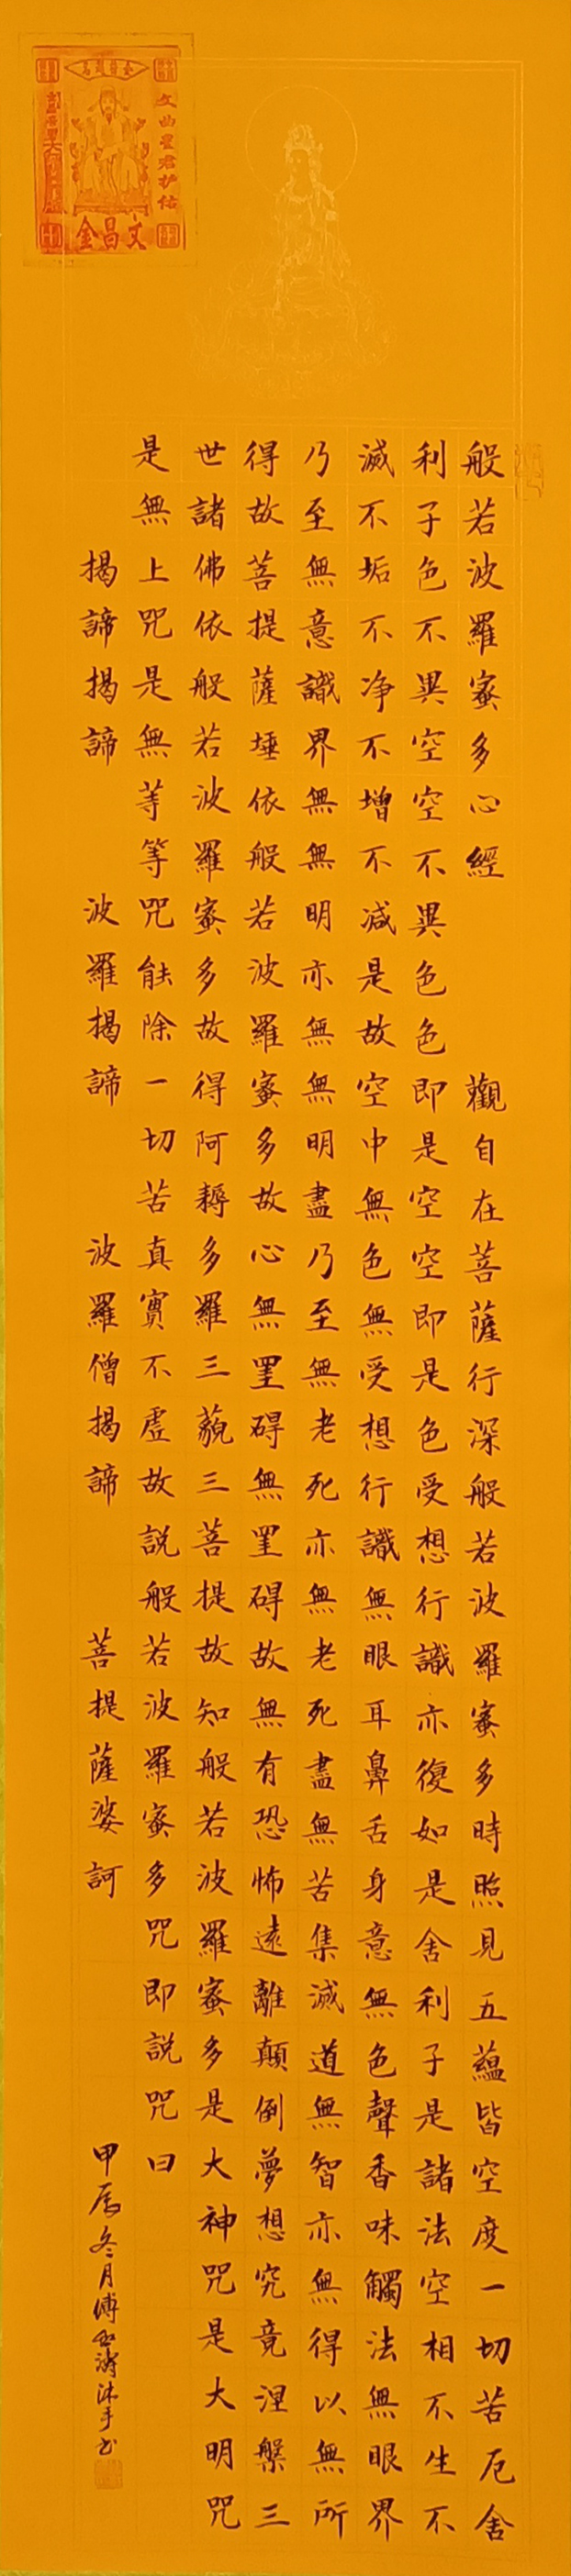 般若波羅蜜多心經 觀自在菩薩行深般若波羅蜜多時照見五蘊皆空度一切苦厄舍
利子色不異空空不異色色即是空空即是色受想行識亦復如是舍利子是諸法空相不生不
滅不垢不净不增不减是故空中無色無受想行識無眼耳鼻舌身意無色聲香味觸法無眼界
乃至無意識界無無明亦無無明盡乃至無老死亦無老死盡無苦集滅道無智亦無得以無所
得故菩提薩埵依般若波羅蜜多故心無罣碍無罣碍故無有恐怖遠離顛倒夢想究竟涅槃三
世諸佛依般若波羅蜜多故得阿耨多羅三藐三菩提故知般若波羅蜜多是大神咒是大明咒
是無上咒是無等等咒能除一切苦真實不虛故説般若波羅蜜多咒即説咒曰
揭諦揭諦 波羅揭諦 波羅僧揭諦 菩提薩婆訶
甲辰冬月傅濤沐手书
文曲星君护佑
文昌金